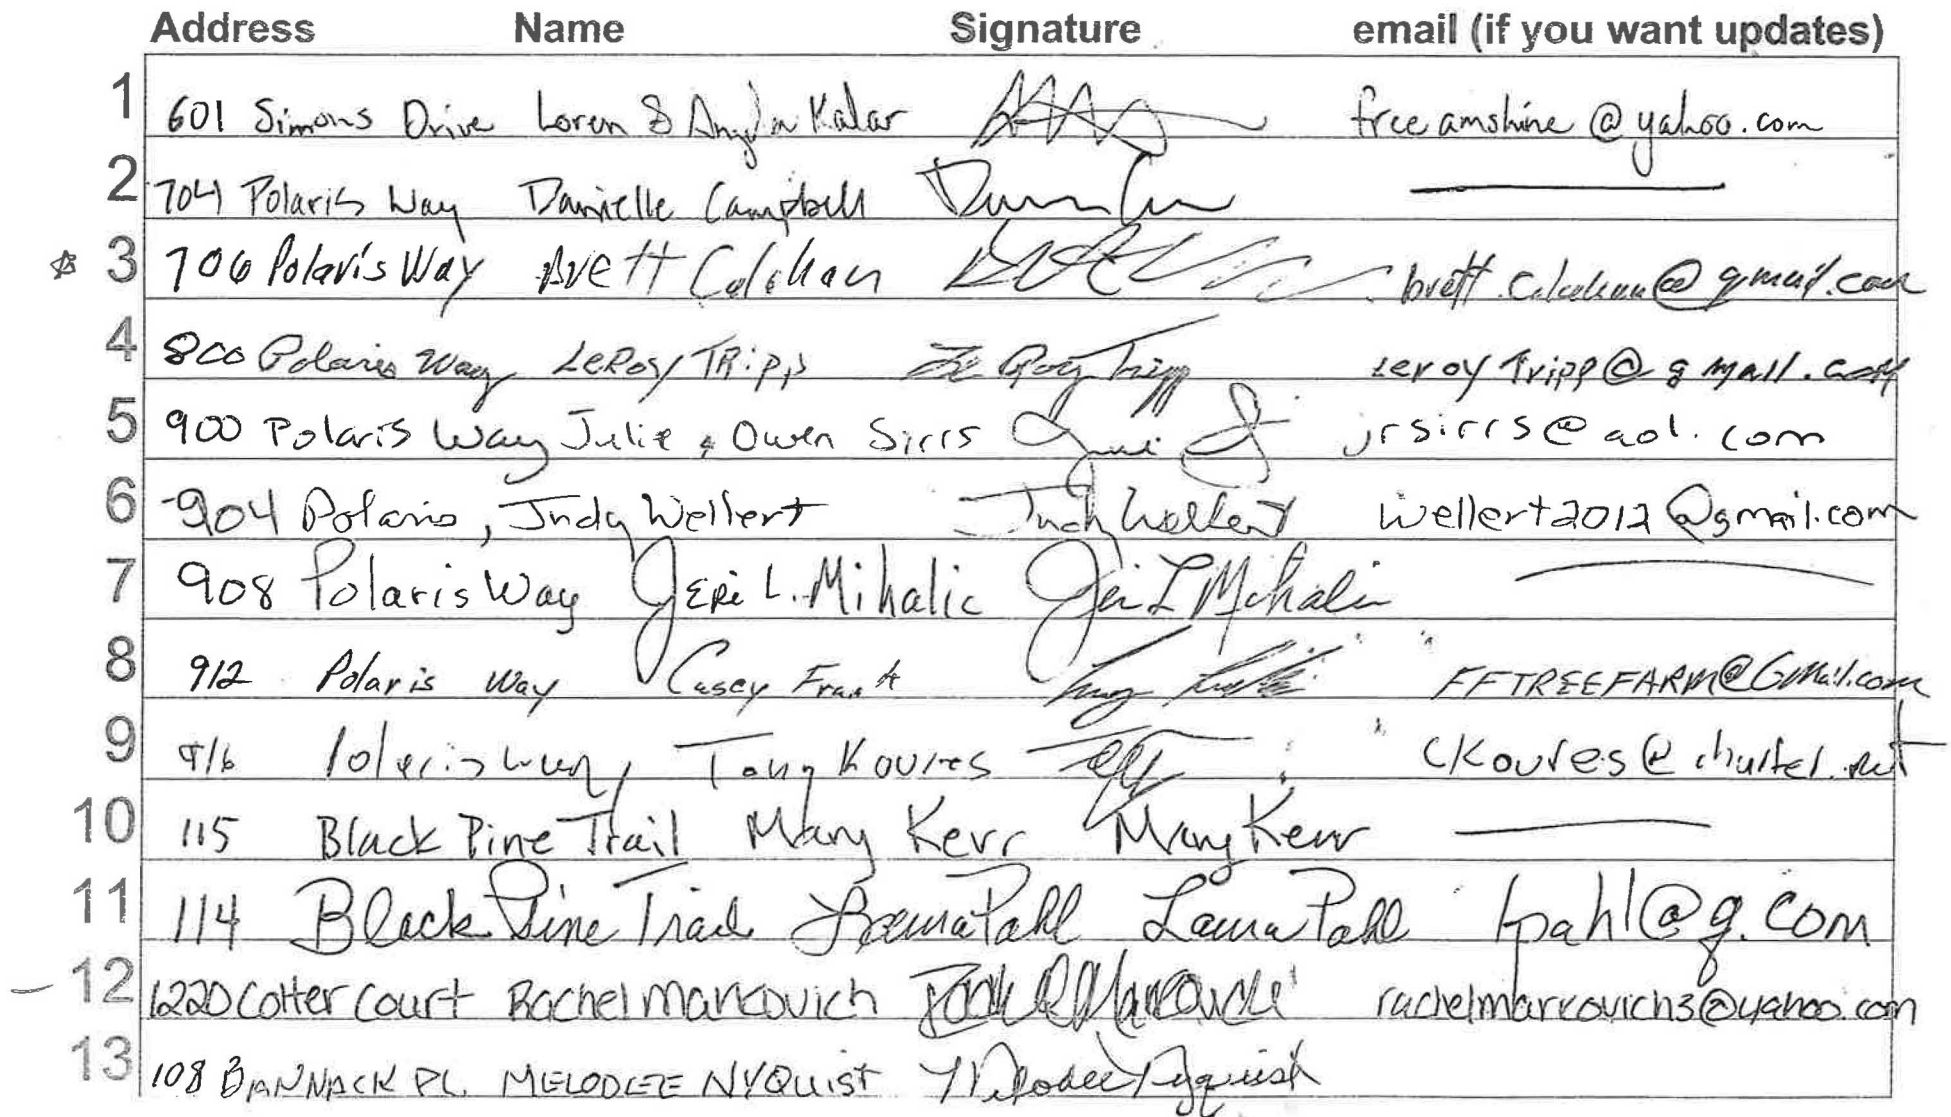 Address Name Signature email (if you want updates)
1 601 Simons Drive Loren & Angela Kalar freeamshine@yahoo.com
2 704 Polaris Way Danielle Campbell
3 706 Polaris Way Brett Calahan brett.calahan@gmail.com
4 800 Polaris Way LeRoy TRipp LeRoy Tripp leroytripp@gmail.com
5 900 Polaris Way Julie & Owen Sirrs jrsirrs@aol.com
6 904 Polaris, Judy Wellert Judy Wellert wellert2012@gmail.com
7 908 Polaris Way JERi L. Mihalic Jeri L Mihalic
8 912 Polaris Way Casey Frank FFTREEFARM@GMail.com
9 916 Polaris Way, Tony Koures ckoures@charter.net
10 115 Black Pine Trail Mary Kerr Mary Kerr
11 114 Black Pine Trail Laura Pahl Laura Pahl lpahl@g.com
12 1220 Cotter Court Rachel Markovich rachelmarkovich3@yahoo.com
13 108 BANNACK PL. MELODEE NYQuist Melodee Nyquist